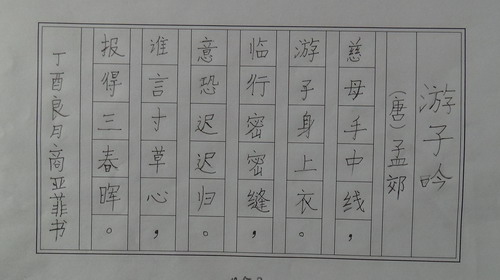 游子吟
(唐)孟郊
慈母手中线，
游子身上衣。
临行密密缝，
意恐迟迟归。
谁言寸草心，
报得三春晖。
丁酉良月商亚菲书